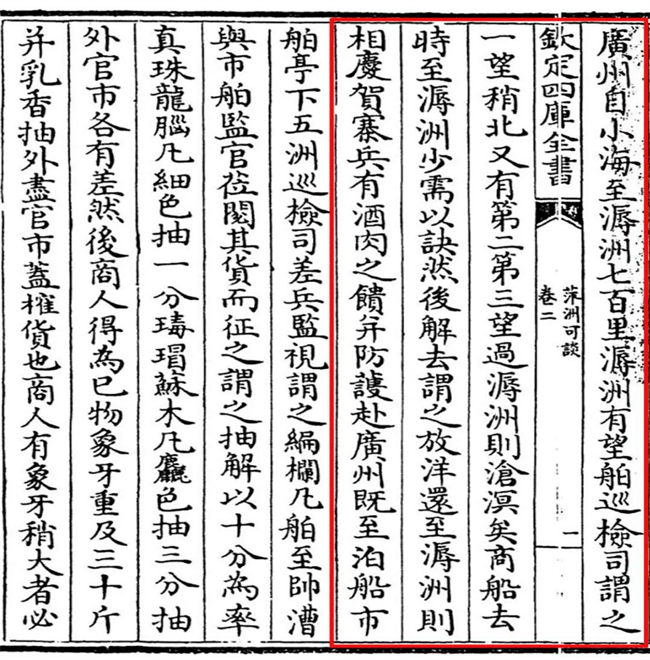 廣州自小海至溽洲七百里溽洲有望舶巡檢司謂之
欽定四庫全書
萍洲可談
卷二
二
一望稍北又有第二第三望過溽洲則滄溟矣商船去
時至溽洲少需以訣然後解去謂之放洋還至溽洲則
相慶賀寨兵有酒肉之饋并防護赴廣州既至泊船市
舶亭下五洲巡檢司差兵監視謂之編欄凡舶至帥漕
與市舶監官莅閱其貨而征之謂之抽解以十分為率
真珠龍腦凡細色抽一分瑇瑁蘇木凡麤色抽三分抽
外官市各有差然後商人得為已物象牙重及三十斤
并乳香抽外盡官市蓋榷貨也商人有象牙稍大者必